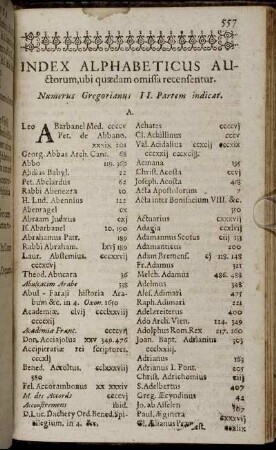 557
INDEX ALPHABETICUS AU-
ctorum, ubi quædam omissa recensentur.
Numerus Gregorianus II. Partem indicat.
A.
Leo ABarbanel Med. ccccv
Pet. de Abbano.
xxxix 201
Georg. Abbas Arch. Cant. 68
Abbo 119. 163
Abdias Babyl. 22
Pet. Abelardus 62
Rabbi Abenezra 10
H. Lud. Abennius 122
Abenragel cxj
Abraam Judæus cxj
Is. Abarbanel 10. 190
Abrahamus Patr. 189
Rubbi Abrahim. lxvj 189
Laur. Abstemius. ccclxxvii
cccxcvj
Theod. Abucara 36
Abulcasim Arabs 338
Abul - Faraji historia Ara
bum &c. in 4. Oxon. 1650
Academiæ clvij
Academiæ Franc. ccccvij
Don. Acciajolus xxv 349. 476
Accipitrariæ rei scriptores.
ccclxxj
Bened. Accoltus.
380
Fel. Accorambonus xx xxxiv
M. des Accords ccccvj
Acconseruitorum ibid.
D. Luc Dachery Ord. Bened. Spi-
cilegium, in 4. &c.
Achates ccccvj
Cl. Achillinus cccxv
Val. Acidalius
ccccxxij
Acmana 195
Christ. Acosta ccvj
Joseph. Acosta 478
Acta Apostolorum 28
Acta inter Bonifacium VIII. &c.
Actuarius
Adagia
Adamannus Scotus 133
Adamantius
Adam Bremens. cj 118. 148
Fr. Adamus 321
Melch. Adamus 486. 488
Adelmus 348
Alef. Adimari 475
Raph. Adimari 224
Adelzreiterus 400
Ado Arch. Vien. 124. 349
Adolphus Rom. Rex 217. 160
Joan. Bapt. Adrianius 503
Adrianus 183
Adrianus I. Pont. 225
Christ. Adrichomius
S. Adelbertus 407
Greg. Æcyodinus 42
Jo. ab Affelen 317
Paul. Æginera
Cl. Ælianus Præn